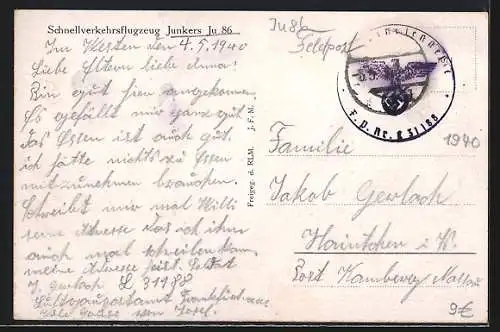 Schnellverkehrsflugzeug Junkers Ju 86
Im Westen den 4.5 1940
Liebe Eltern liebe Anna!
Bin gut hier angekommen.
Es gefällt mir ganz gut
Das Essen ist auch gut.
ich hätte nichts zu Essen
mitzunehmen brauchen.
Schreibt mir mal Willi
seine Adresse das ich ihm
auch mal schreiben kann
meine Adresse heist. Soldat
J. Gerlach L 31188
Luftgaupostamt Frankfurt
Viele Grüße von Josef.
Freigeg. d. RLM. J. F. M.
Ju 86
Feldpost
F.P. Nr. L 31188
1940
Familie
Jakob Gerlach
Haintchen i. W.
Post Kamberg Nassau
9€